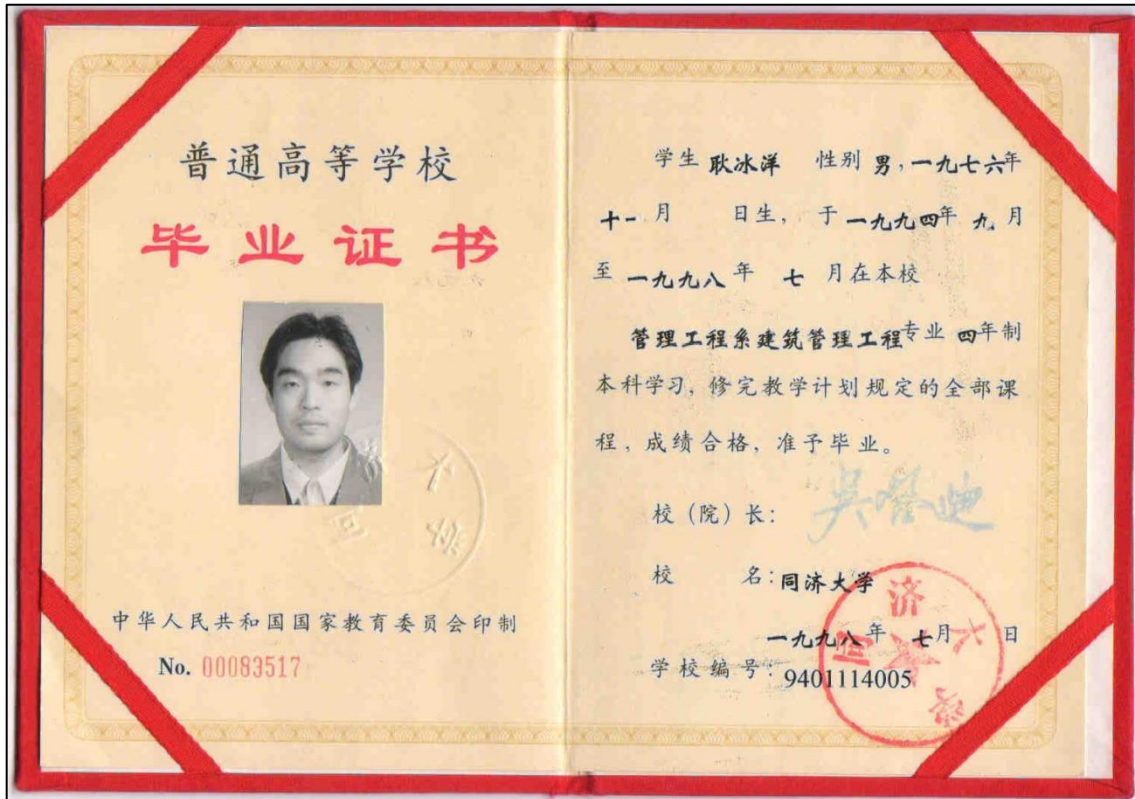 普通高等学校
毕业证书
中华人民共和国国家教育委员会印制
No. 00083517
学生 耿冰洋 性别 男，一九七六年
十一月 日生，于一九九四年 九月
至 一九九八 年 七 月在本校
管理工程系建筑管理工程专业 四年制
本科学习，修完教学计划规定的全部课
程，成绩合格，准予毕业。
校（院）长：吴启迪
校 名：同济大学
一九九八年 七月 日
学校编号：9401114005
同济大学